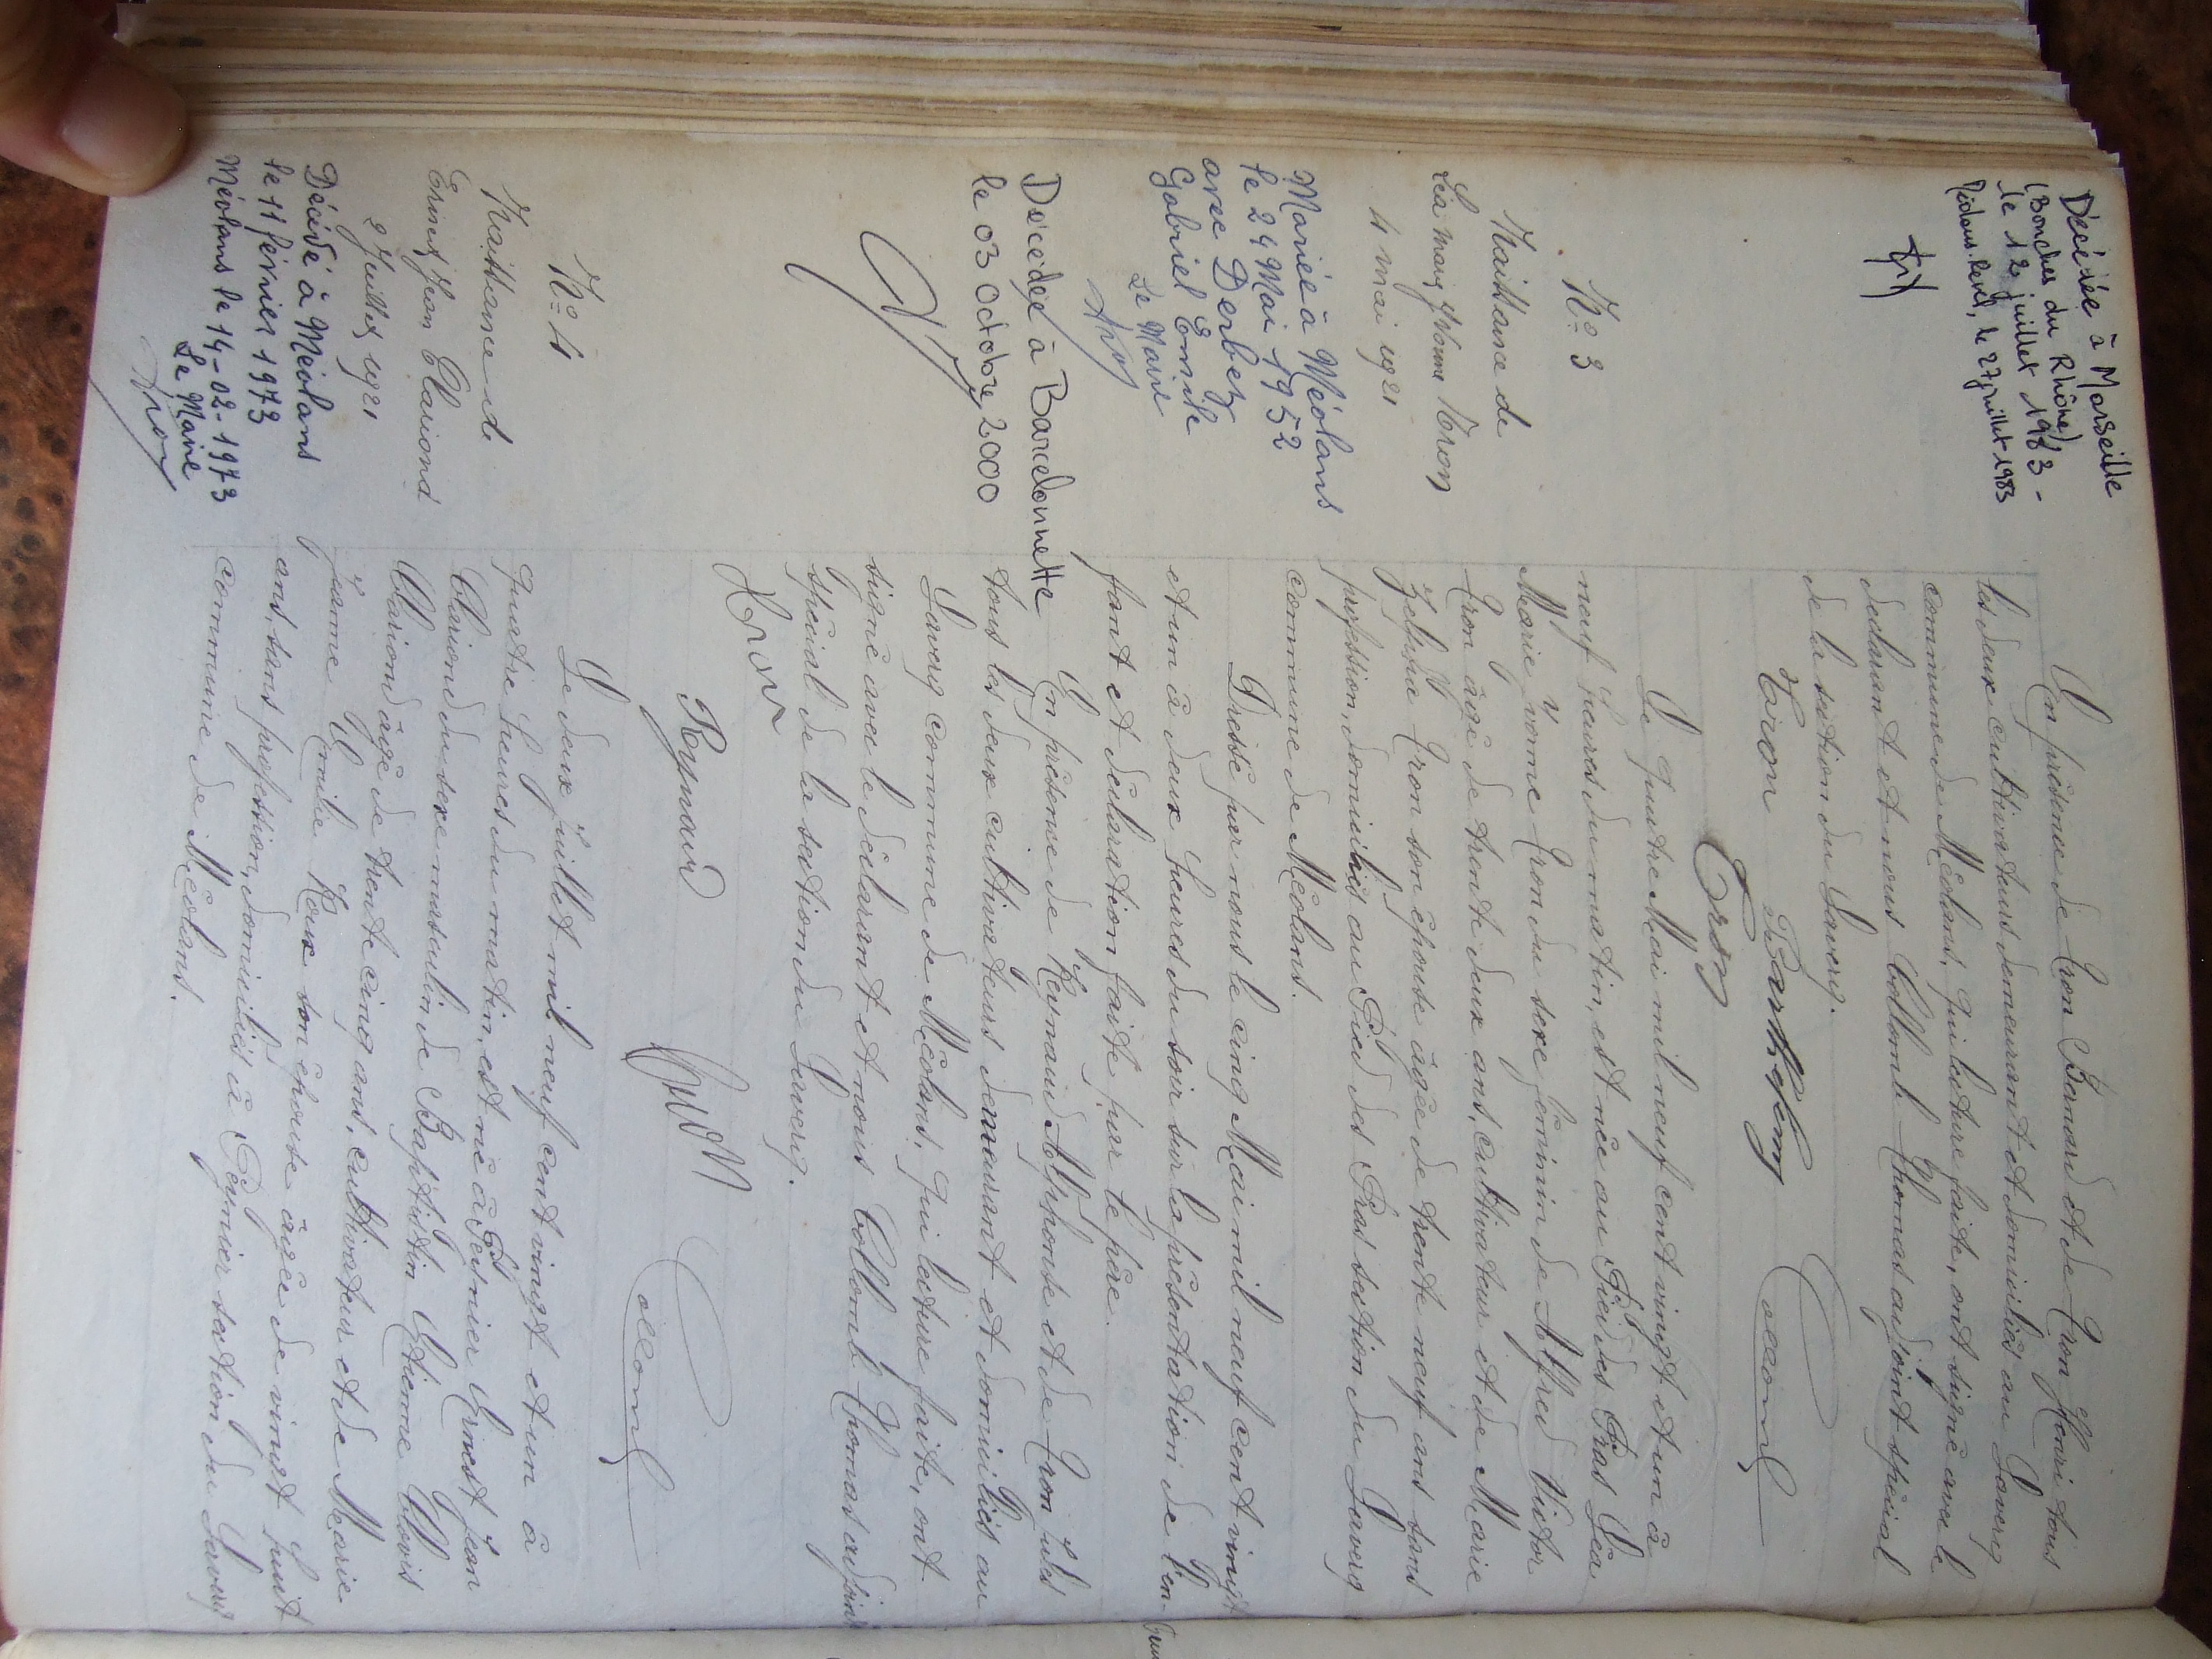 Décédée à Marseille
(Bouches du Rhône)
le 12 juillet 1983 -
Méolans-Revel, le 27 juillet 1983
En présence de Tron Bernard et de Tron Henri tous
les deux cultivateurs demeurant et domiciliés au Laverq
commune de Méolans, qui lecture faite, ont signé avec le
déclarant et nous Collomb Thomas adjoint spécial
de la section du Laverq.
Tron Barthélemy Collomb
Tron
N° 3
Naissance de
Léa Marie Yvonne Tron
4 mai 1921
Mariée à Méolans
le 24 Mai 1952
avec Derbez
Gabriel Emile
Le Maire
Décédée à Barcelonnette
le 03 Octobre 2000
Le quatre Mai mil neuf cent vingt et un à
neuf heures du matin, est née au Pied des Pras Léa
Marie Yvonne Tron du sexe féminin de Alfred Victor
Tron âgé de trente deux ans, cultivateur et de Marie
Tron son épouse âgée de trente neuf ans sans
profession, domiciliés au Pied des Pras section du Laverq
commune de Méolans.
Dressé par nous le cinq Mai mil neuf cent vingt
et un à deux heures du soir sur la présentation de l'en-
fant et déclaration faite par le père.
En présence de Reynaud Alphonse et de Tron Jules
tous les deux cultivateurs demeurant et domiciliés au
Laverq commune de Méolans, qui lecture faite, ont
signé avec le déclarant et nous Collomb Thomas adjoint
spécial de la section du Laverq.
Tron
Reynaud Tron Collomb
N° 4
Naissance de
Ernest Jean Clariond
2 Juillet 1921
Décédé à Méolans
le 11 février 1973
Méolans le 14-02-1973
Le Maire
Le deux Juillet mil neuf cent vingt et un à
quatre heures du matin, est né à Peynier Ernest Jean
Clariond du sexe masculin de Baptistin Etienne Clovis
Clariond âgé de trente cinq ans, cultivateur et de Marie
Jeanne Emilie Roux son épouse âgée de vingt huit
ans, sans profession, domiciliés à Peynier section du Laverq
commune de Méolans.